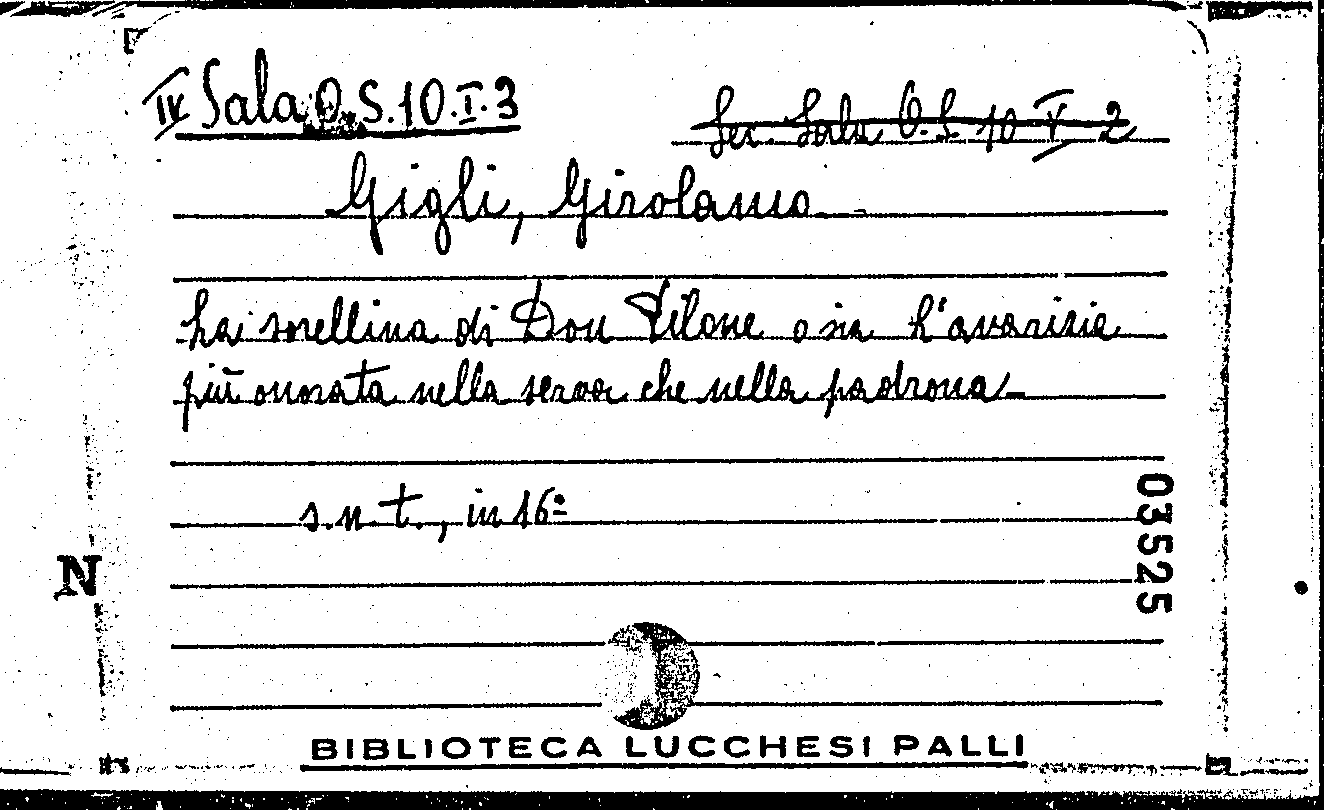 IV Sala O.S.10.I.3
Sec. Sala O.S. 10 V 2
Gigli, Girolamo
La sorellina di Don Pilone o sia L'avarizia
più onorata nella serva che nella padrona
s.n.t., in 16º
03525
N
BIBLIOTECA LUCCHESI PALLI